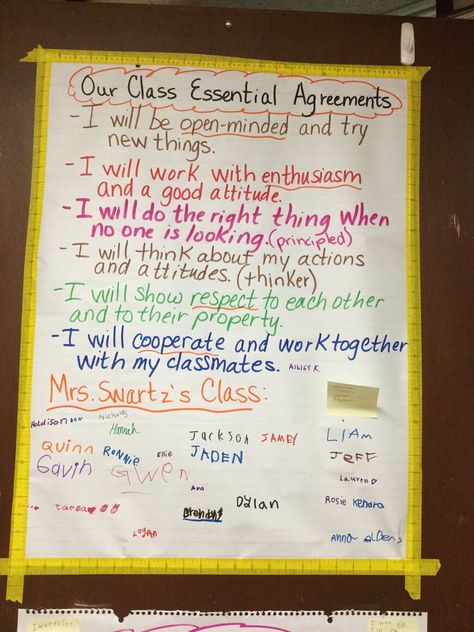 Our Class Essential Agreements
-I will be open-minded and try
new things.
-I will work with enthusiasm
and a good attitude.
-I will do the right thing when
no one is looking. (principled)
-I will think about my actions
and attitudes. (thinker)
-I will show respect to each other
and to their property.
-I will cooperate and work together
with my classmates. ASHLEY K.
Mrs. Swartz's Class:
Addison Nicholas
Hannah Jackson JAMEY LIAM
Quinn RONNIE Ellie JADEN JEFF
Gavin Gwen Lauren
Ava
Dylan Rosie Kendra
Brendan
Logan Anna